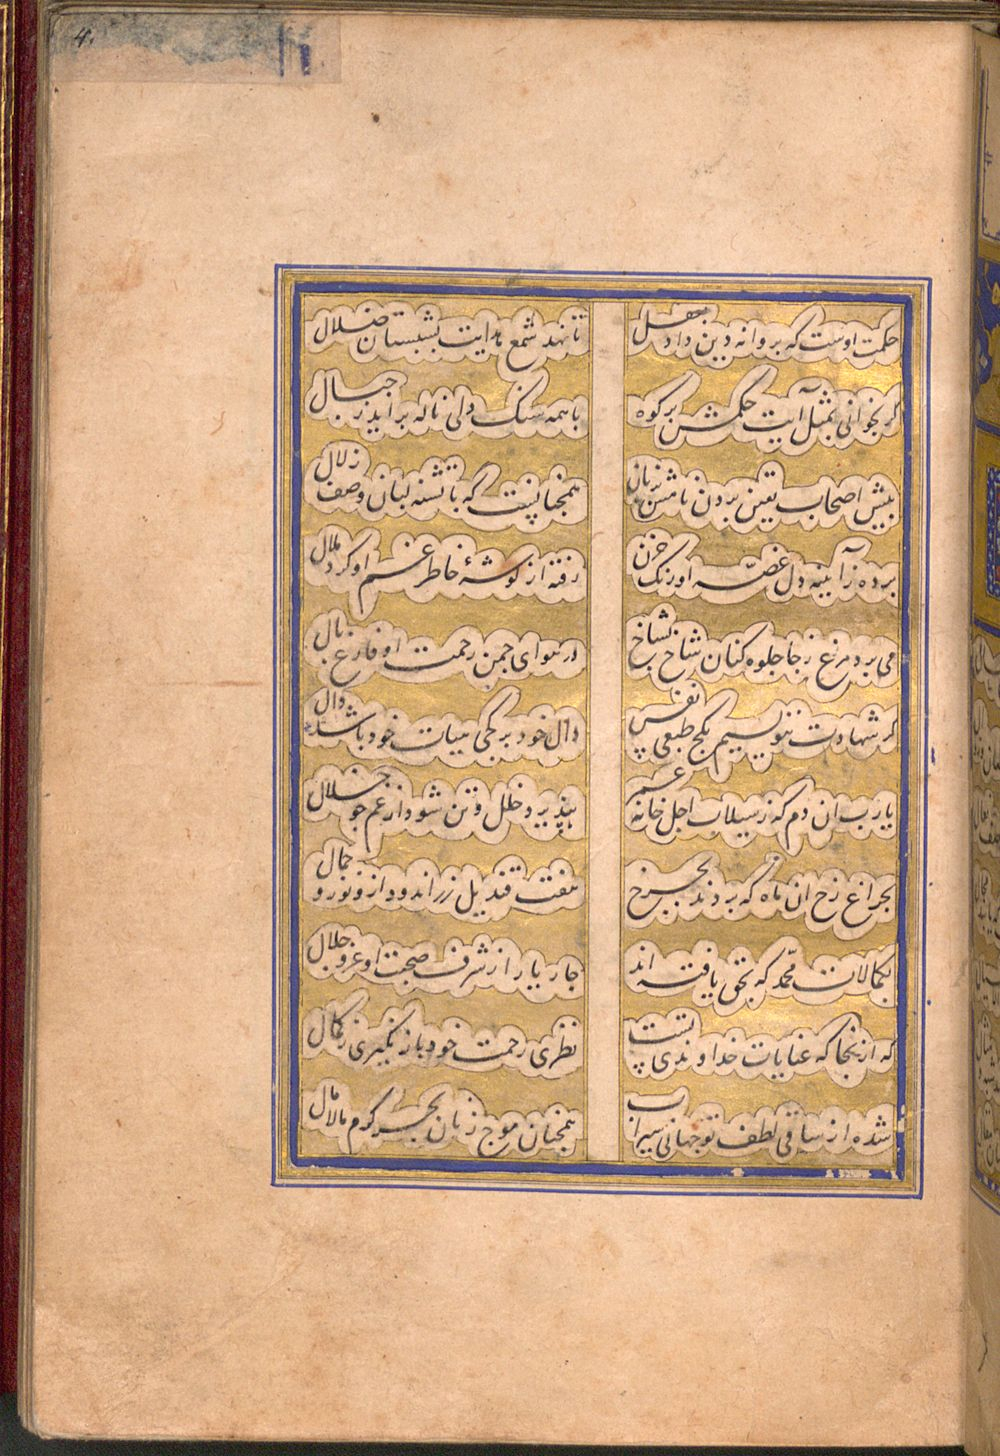 4.
حکمت اوست که پروانه دین داد بعقل
تا نهد شمع هدایت بشبستان ضلال
گر بخوانی بمثل آیت حکمش بر کوه
با همه سنگ دلی ناله برآید ز جبال
پیش اصحاب یقین بردن نامش بزبان
همچنانست که با تشنه لبان وصف زلال
برده ز آیینه دل غصه او زنگ حزن
رفته از گوشهٔ خاطر غم او گرد ملال
می پرد مرغ رجا جلوه کنان شاخ بشاخ
در هوای چمن رحمت او فارغ بال
گر شهادت ننویسیم بکج طبعی نفس
دال خود بر کجی هیات خود باشد دال
یا رب ان دم که ز سیلاب اجل خانه عمر
بپذیرد خلل و تن شود از غم چو خلال
بچراغ رخ ان ماه که بردند بچرخ
هفت قندیل زراندود ازو نور و جمال
بکمالات محمد که بحق یافته اند
چار یار از شرف صحبت او عز و جلال
که از انجا که عنایات خداوندی تست
نظری رحمت خود باز نگیری ز کمال
شده از ساقی لطف تو جهانی سیراب
همچنان موج زنان بحر کرم مالامال